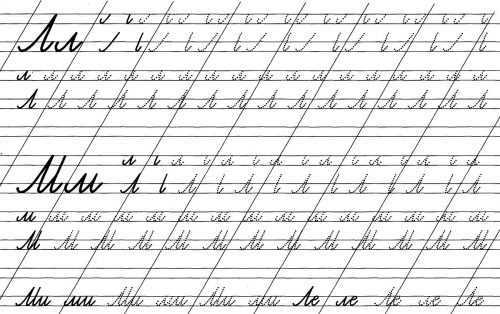 Лл
л л л л л л л л л л л л л л л л л л
Л Л Л Л Л Л Л Л Л Л Л Л Л Л Л Л
Мм
м м м м м м м м м м м м м м м
М М М М М М М М М М М М М
Ми ми Ми ми Ми ми Ле ле Ле ле Ле